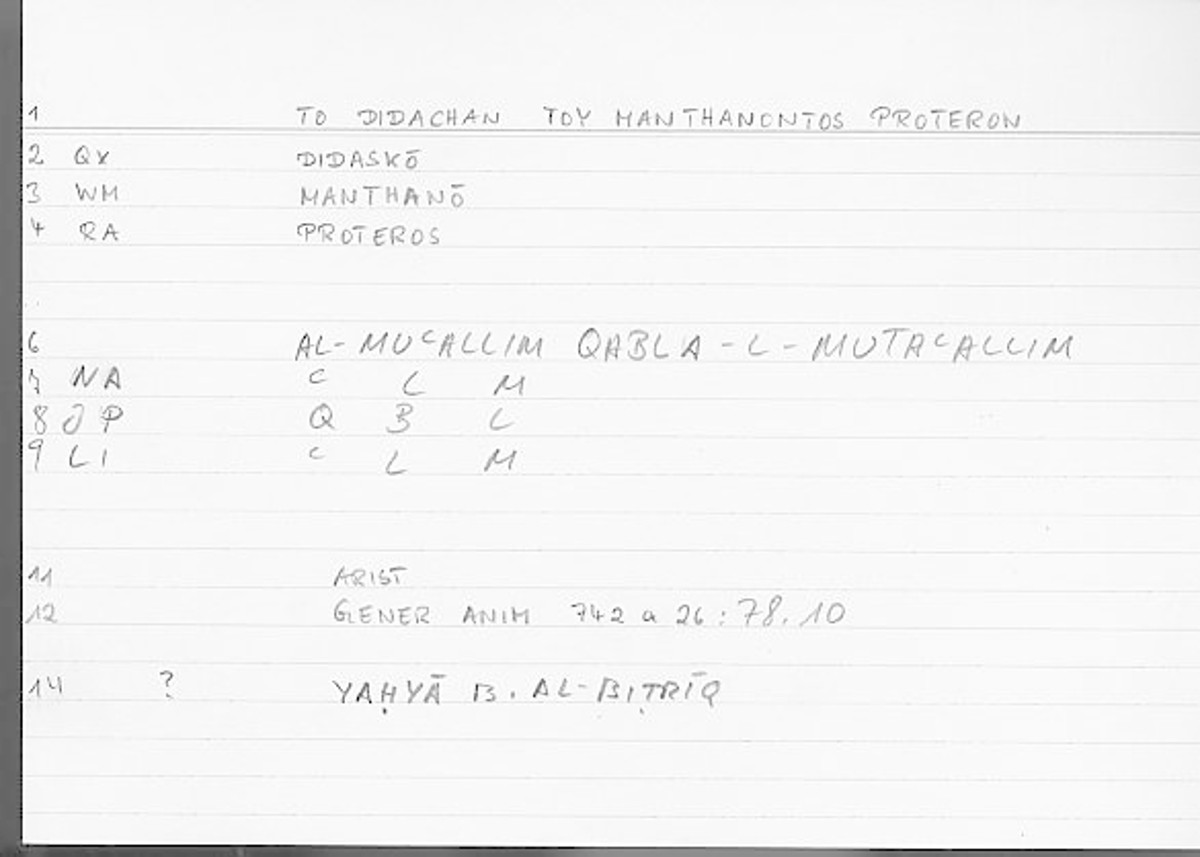 1 TO DIDACHAN TOY MANTHANONTOS PROTERON
2 QX DIDASKŌ
3 WM MANTHANŌ
4 QA PROTEROS
6 AL-MUᶜALLIM QABLA-L-MUTAᶜALLIM
7 NA ᶜ L M
8 JP Q B L
9 LI ᶜ L M
11 ARIST
12 GENER ANIM 742 a 26 : 78.10
14 ? YAḤYĀ B. AL-BIṬRĪQ